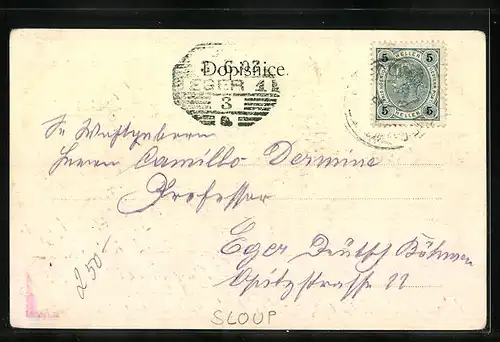 6.03
Dopisnice.
EGER 1
3
5 HELLER 5
5 HELLER 5
Herrn Camillo Dermine
Professor
Eger Deutsch Böhmen
Opitzstrasse 22
250
SLOUP